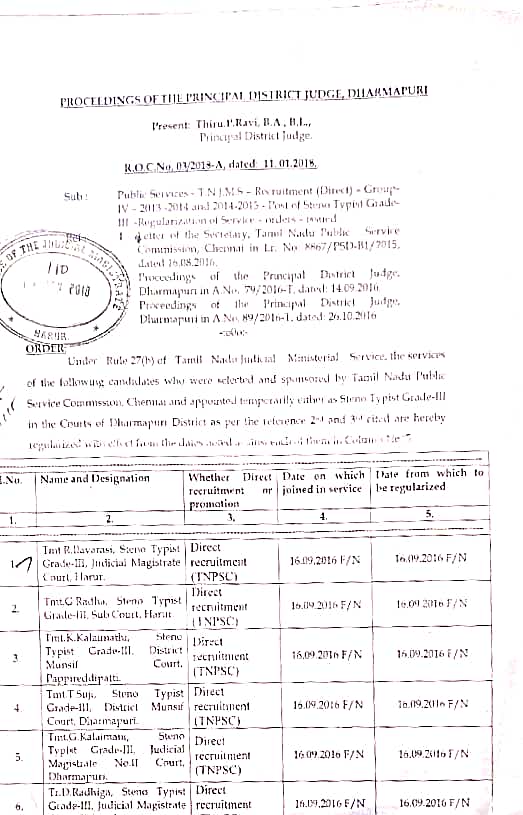 PROCEEDINGS OF THE PRINCIPAL DISTRICT JUDGE, DHARMAPURI
Present: Thiru.P.Ravi, B.A., B.L.,
Principal District Judge.
R.O.C.No. 03/2018-A, dated: 11.01.2018.
Sub : Public Services - T.N.J.M.S - Recruitment (Direct) - Group-
IV - 2013-2014 and 2014-2015 - Post of Steno Typist Grade-
III -Regularization of Service - orders - issued
Ref: 1 Letter of the Secretary, Tamil Nadu Public Service
Commission, Chennai in Lr. No. 8867/PSD-B1/2015,
dated 16.08.2016.
Proceedings of the Principal District Judge,
Dharmapuri in A.No. 79/2016-1, dated: 14.09.2016
Proceedings of the Principal District Judge,
Dharmapuri in A.No. 89/2016-1, dated: 26.10.2016
-:o0o:-
OF THE JUDICIAL MAGISTRATE
110
2018
* HARUR. *
ORDER:
Under Rule 27(b) of Tamil Nadu Judicial Ministerial Service, the services
of the following candidates who were selected and sponsored by Tamil Nadu Public
Service Commission, Chennai and appointed temporarily either as Steno Typist Grade-III
in the Courts of Dharmapuri District as per the reference 2nd and 3rd cited are hereby
regularized with effect from the dates noted against each of them in Column
l.No. Name and Designation Whether Direct recruitment or promotion Date on which joined in service Date from which to be regularized
1. 2. 3. 4. 5.
1. Tmt.R.Ilavarasi, Steno Typist Grade-III, Judicial Magistrate Court, Harur. Direct recruitment (TNPSC) 16.09.2016 F/N 16.09.2016 F/N
2. Tmt.G.Radha, Steno Typist Grade-III, Sub Court, Harur. Direct recruitment (TNPSC) 16.09.2016 F/N 16.09.2016 F/N
3. Tmt.K.Kalaimathi, Steno Typist Grade-III, District Munsif Court, Pappireddipatti. Direct recruitment (TNPSC) 16.09.2016 F/N 16.09.2016 F/N
4. Tmt.T.Suji, Steno Typist Grade-III, District Munsif Court, Dharmapuri. Direct recruitment (TNPSC) 16.09.2016 F/N 16.09.2016 F/N
5. Tmt.G.Kalaimani, Steno Typist Grade-III, Judicial Magistrate No.II Court, Dharmapuri. Direct recruitment (TNPSC) 16.09.2016 F/N 16.09.2016 F/N
6. Tr.D.Radhiga, Steno Typist Grade-III, Judicial Magistrate Direct recruitment 16.09.2016 F/N 16.09.2016 F/N